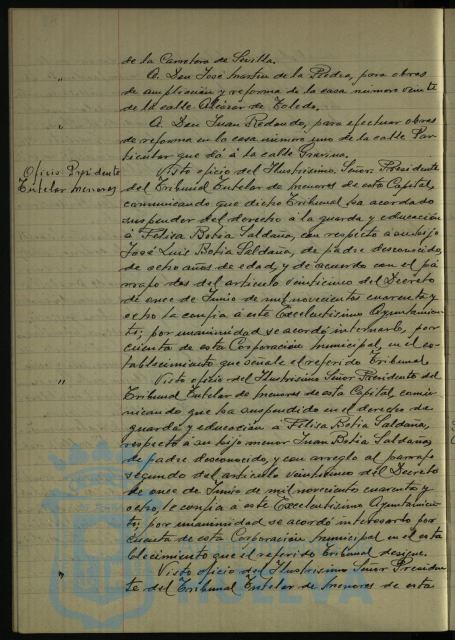 de la Carretera de Sevilla.
" A Don José Martin de la Piedra, para obras
de ampliación y reforma de la casa número veinte
de la calle Alcázar de Toledo.
" A Don Juan Redondo, para efectuar obras
de reforma en la casa número uno de la calle Par-
ticular que dá á la calle
Oficio Presidente Visto oficio del Ilustrísimo Señor Presidente
Tutelar menores del Tribunal Tutelar de Menores de esta Capital,
comunicando que dicho Tribunal ha acordado
suspender del derecho á la guarda y educación
á Felisa Botia Saldaña, con respecto a su hijo
José Luis Botia Saldaña, de padre desconocido,
de ocho años de edad, y de acuerdo con el pá-
rrafo dos del artículo veinticinco del Decreto
de once de Junio de mil novecientos cuarenta y
ocho la confia á este Excelentísimo Ayuntamien-
to; por unanimidad se acordó internarlo, por
cuenta de esta Corporación Municipal, en el es-
tablecimiento que señale el referido Tribunal.
" Visto oficio del Ilustrísimo Señor Presidente del
Tribunal Tutelar de Menores de esta Capital comu-
nicando que ha suspendido en el derecho de
guarda y educación á Felisa Botia Saldaña,
respecto á su hijo menor Juan Botia Saldaña,
de padre desconocido, y con arreglo al párrafo
segundo del artículo veinticinco del Decreto
de once de Junio de mil novecientos cuarenta y
ocho, le confia á este Excelentísimo Ayuntamien-
to; por unanimidad se acordó internarlo por
cuenta de esta Corporación Municipal en el esta-
blecimiento que el referido Tribunal designe.
" Visto oficio del Ilustrísimo Señor Presiden-
te del Tribunal Tutelar de Menores de esta
HUELVA